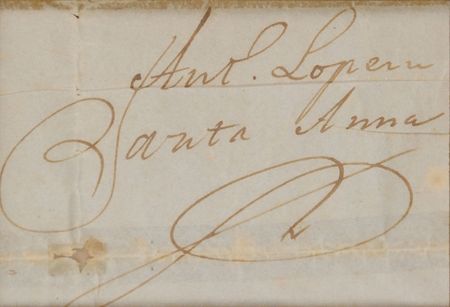 Ant. Lopez
Santa Anna